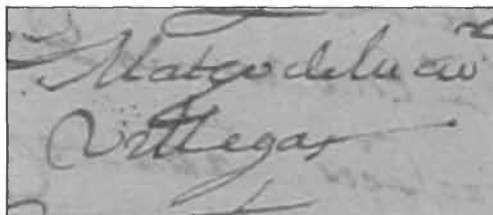 Mateo de lucio
Villegas